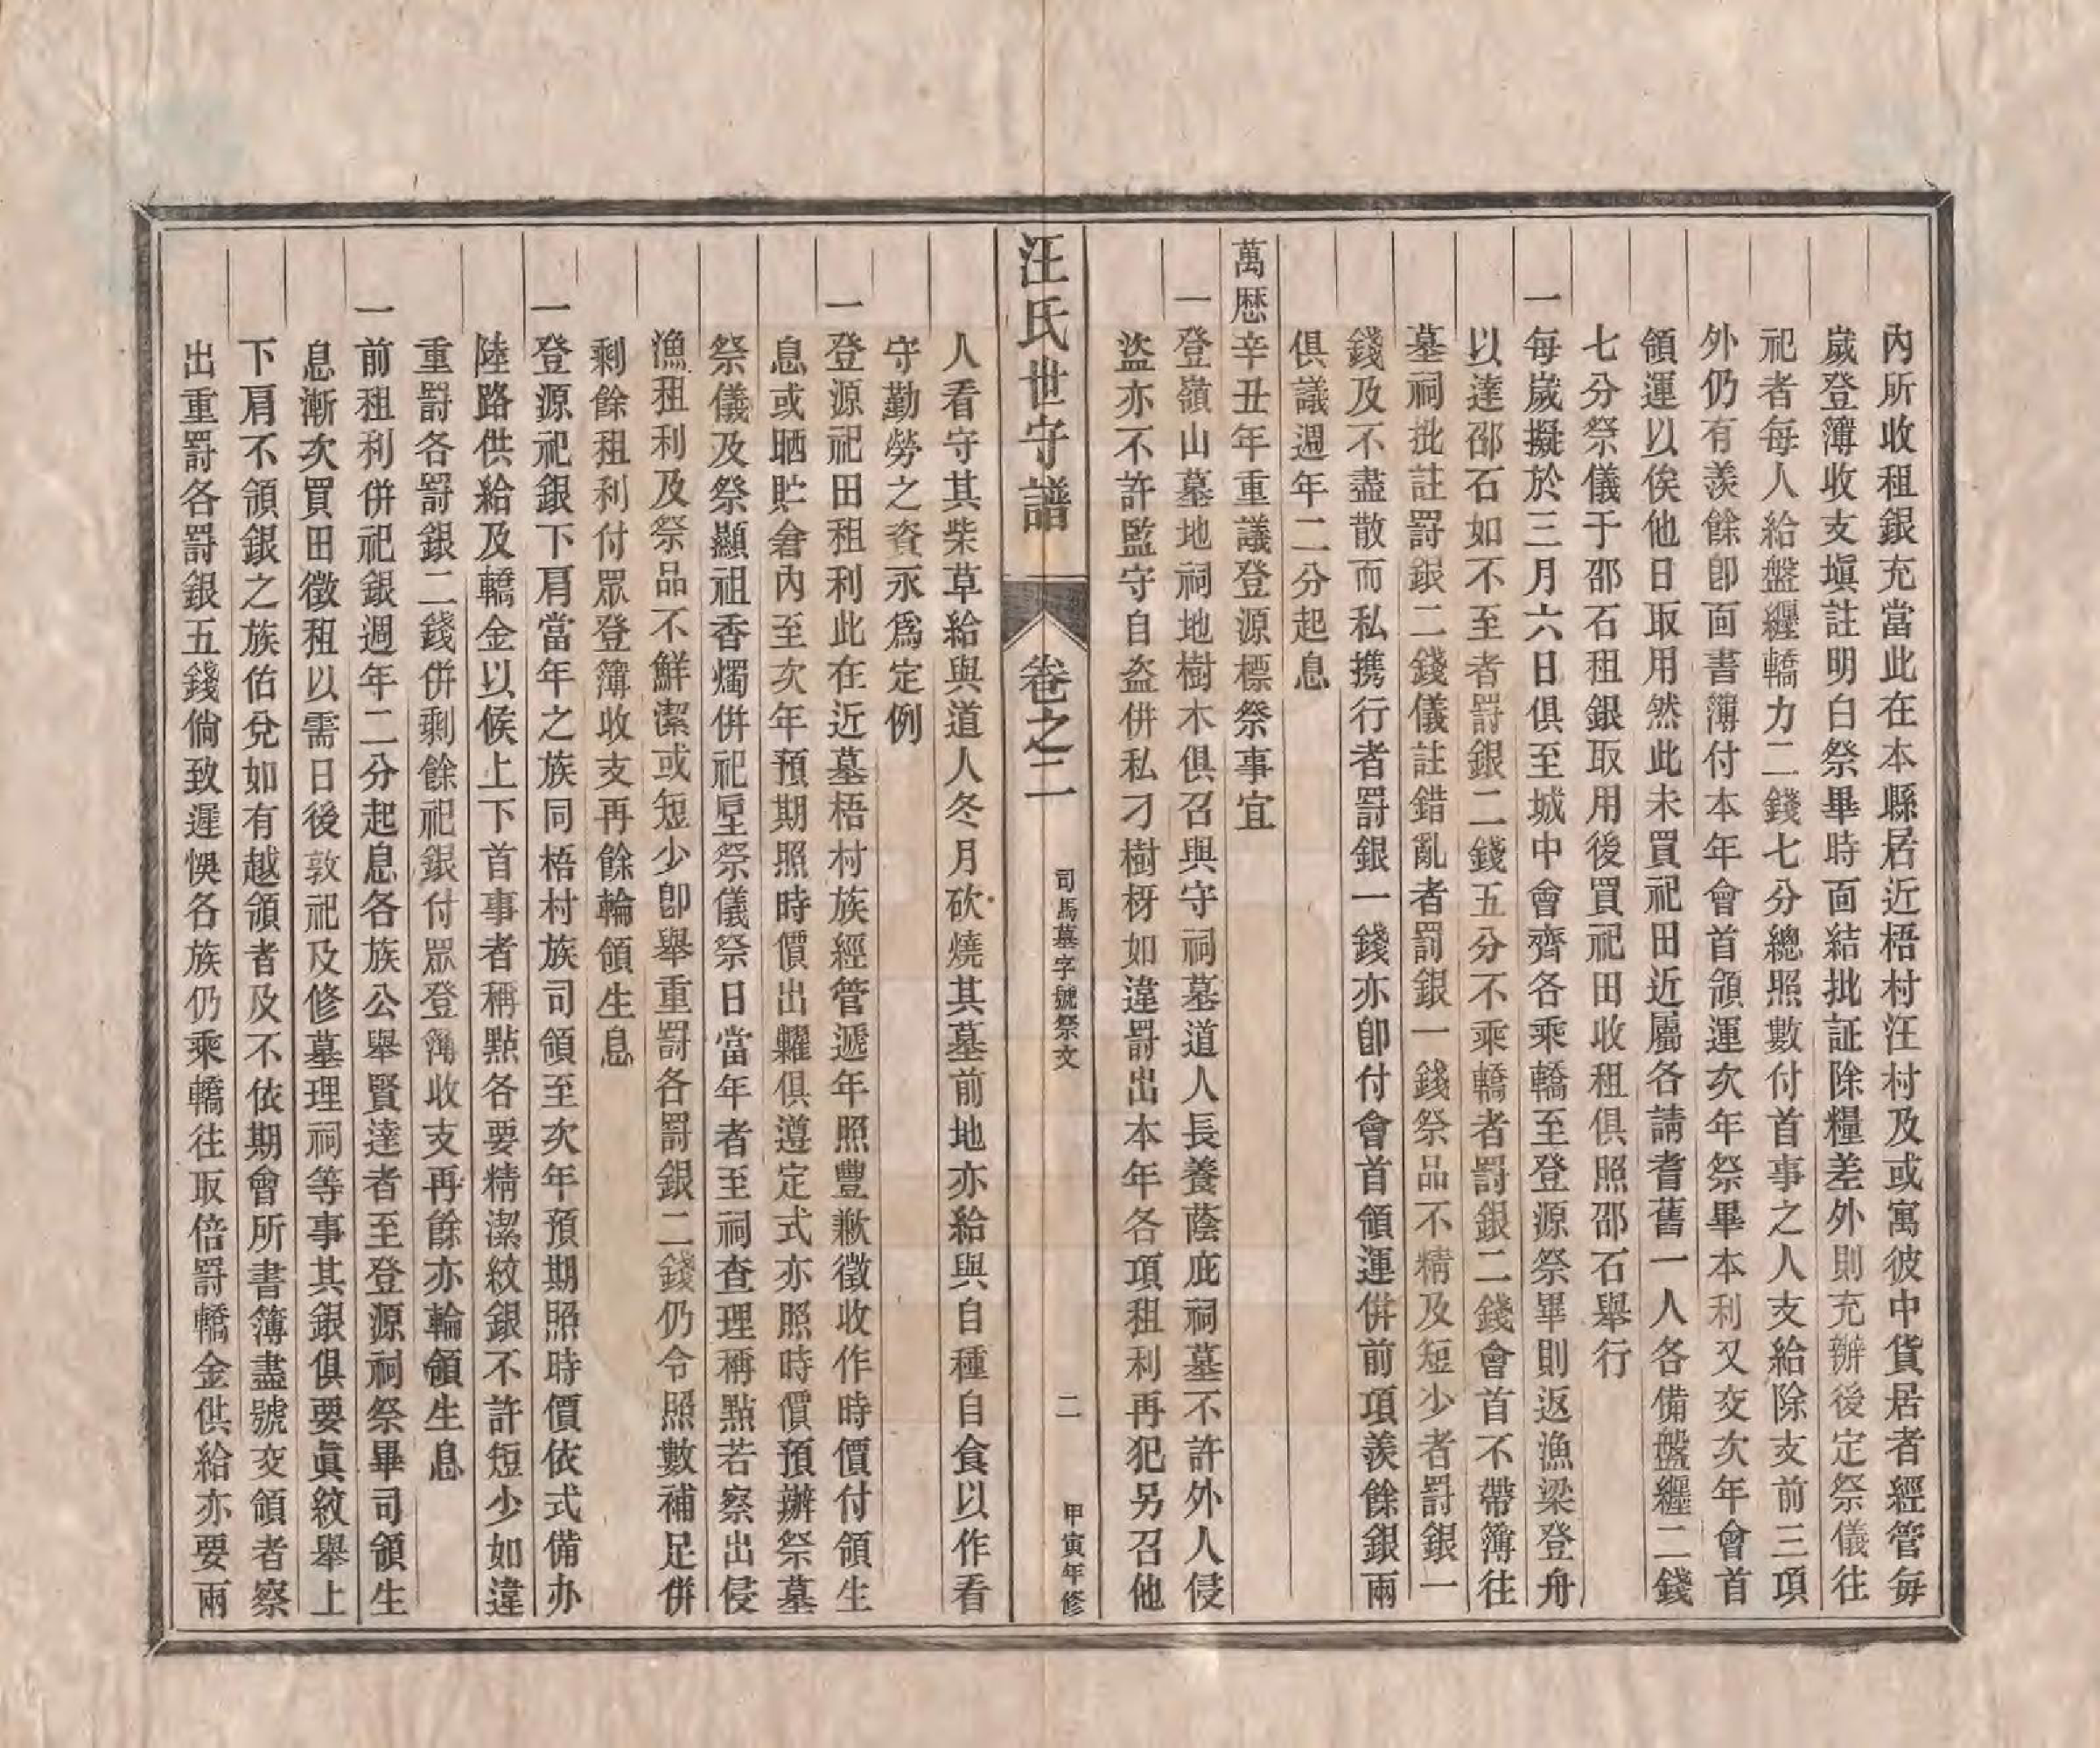 內所收租銀充當此在本縣居近梧村汪村及或寓彼中貨居者經管每
歲登簿收支塡註明白祭畢時面結批証除糧差外則充辦後定祭儀往
祀者每人給盤纏轎力二錢七分總照數付首事之人支給除支前三項
外仍有羨餘卽面書簿付本年會首領運次年祭畢本利又交次年會首
領運以俟他日取用然此未買祀田近屬各請耆舊一人各備盤纏二錢
七分祭儀于邵石租銀取用後買祀田收租俱照邵石舉行
一每歲擬於三月六日俱至城中會齊各乘轎至登源祭畢則返漁梁登舟
以達邵石如不至者罰銀二錢五分不乘轎者罰銀二錢會首不帶簿往
墓祠批註罰銀二錢儀註錯亂者罰銀一錢祭品不精及短少者罰銀一
錢及不盡散而私携行者罰銀一錢亦卽付會首領運併前項羨餘銀兩
俱議週年二分起息
萬歴辛丑年重議登源標祭事宜
一登嶺山墓地祠地樹木俱召與守祠墓道人長養蔭庇祠墓不許外人侵
盜亦不許監守自盜併私刁樹枒如違罰出本年各項租利再犯另召他
汪氏世守譜
卷之二
司馬墓字號祭文
二
甲寅年修
人看守其柴草給與道人冬月砍燒其墓前地亦給與自種自食以作看
守勤勞之資永爲定例
一登源祀田租利此在近墓梧村族經管遞年照豐歉徵收作時價付領生
息或晒貯倉內至次年預期照時價出糶俱遵定式亦照時價預辦祭墓
祭儀及祭顯祖香燭併祀垕祭儀祭日當年者至祠查理稱點若察出侵
漁租利及祭品不鮮潔或短少卽舉重罰各罰銀二錢仍令照數補足併
剩餘租利付眾登簿收支再餘輪領生息
一登源祀銀下肩當年之族同梧村族司領至次年預期照時價依式備办
陸路供給及轎金以候上下首事者稱點各要精潔紋銀不許短少如違
重罰各罰銀二錢併剩餘祀銀付眾登簿收支再餘亦輪領生息
一前租利併祀銀週年二分起息各族公舉賢達者至登源祠祭畢司領生
息漸次買田徵租以需日後敦祀及修墓理祠等事其銀俱要眞紋舉上
下肩不領銀之族佑兌如有越領者及不依期會所書簿盡號交領者察
出重罰各罰銀五錢倘致遲悞各族仍乘轎往取倍罰轎金供給亦要兩